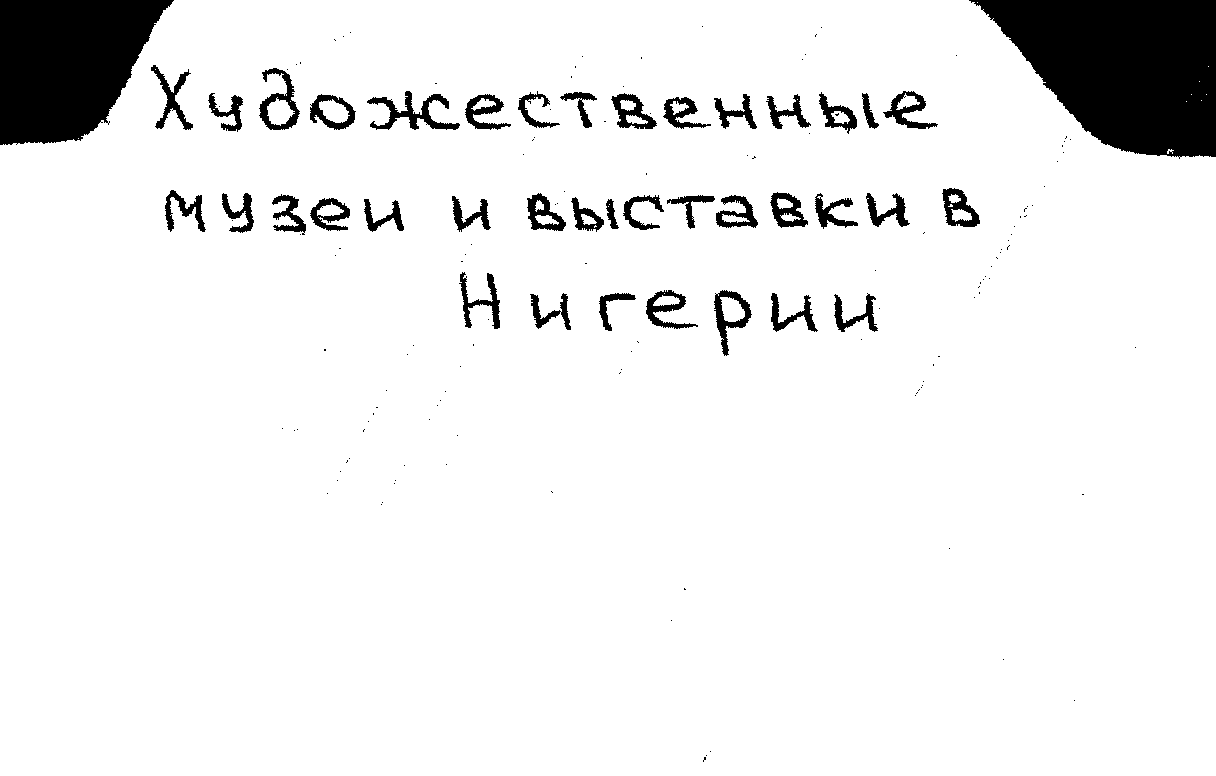 Художественные
музеи и выставки в
Нигерии